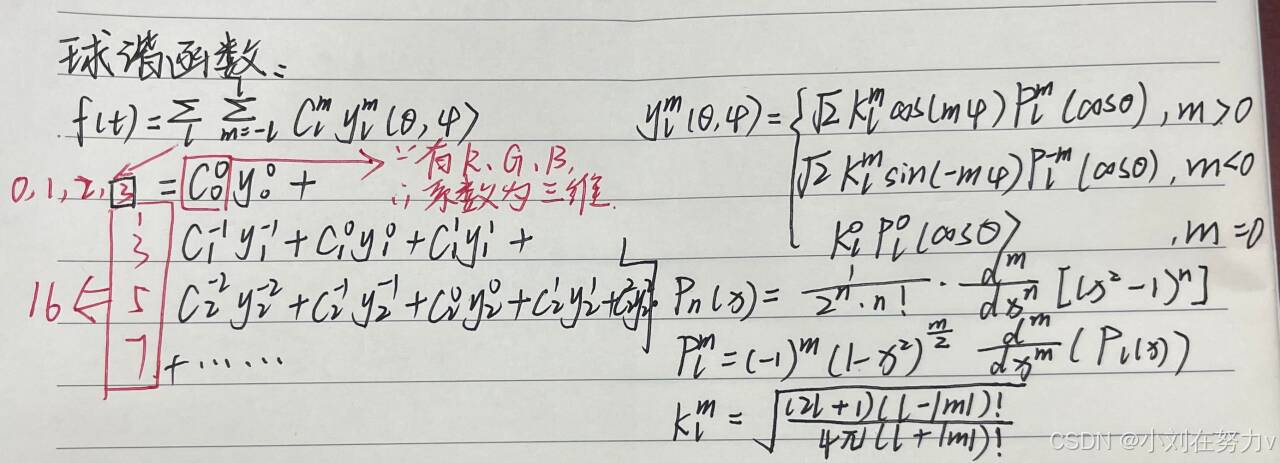 球谐函数:
f(t) = Σ_l Σ_{m=-l}^{l} C_l^m y_l^m (θ, φ)
0, 1, 2, 3 = C_0^0 y_0^0 +
∵ 有 R、G、B,
∴ 系数为三维.
1
3 C_1^{-1} y_1^{-1} + C_1^0 y_1^0 + C_1^1 y_1^1 +
16 ← 5 C_2^{-2} y_2^{-2} + C_2^{-1} y_2^{-1} + C_2^0 y_2^0 + C_2^1 y_2^1 + C_2^2 y_2^2
7 + ······
y_l^m (θ, φ) = { √2 K_l^m cos(mφ) P_l^m (cosθ), m > 0
√2 K_l^m sin(-mφ) P_l^{-m} (cosθ), m < 0
K_l^0 P_l^0 (cosθ) , m = 0
P_n(x) = 1/(2^n · n!) · d^m/dx^n [(x² - 1)^n]
P_l^m = (-1)^m (1 - x²)^{m/2} d^m/dx^m (P_l(x))
K_l^m = √((2l + 1)(l - |m|)! / 4π(l + |m|)!)
CSDN @小刘在努力v